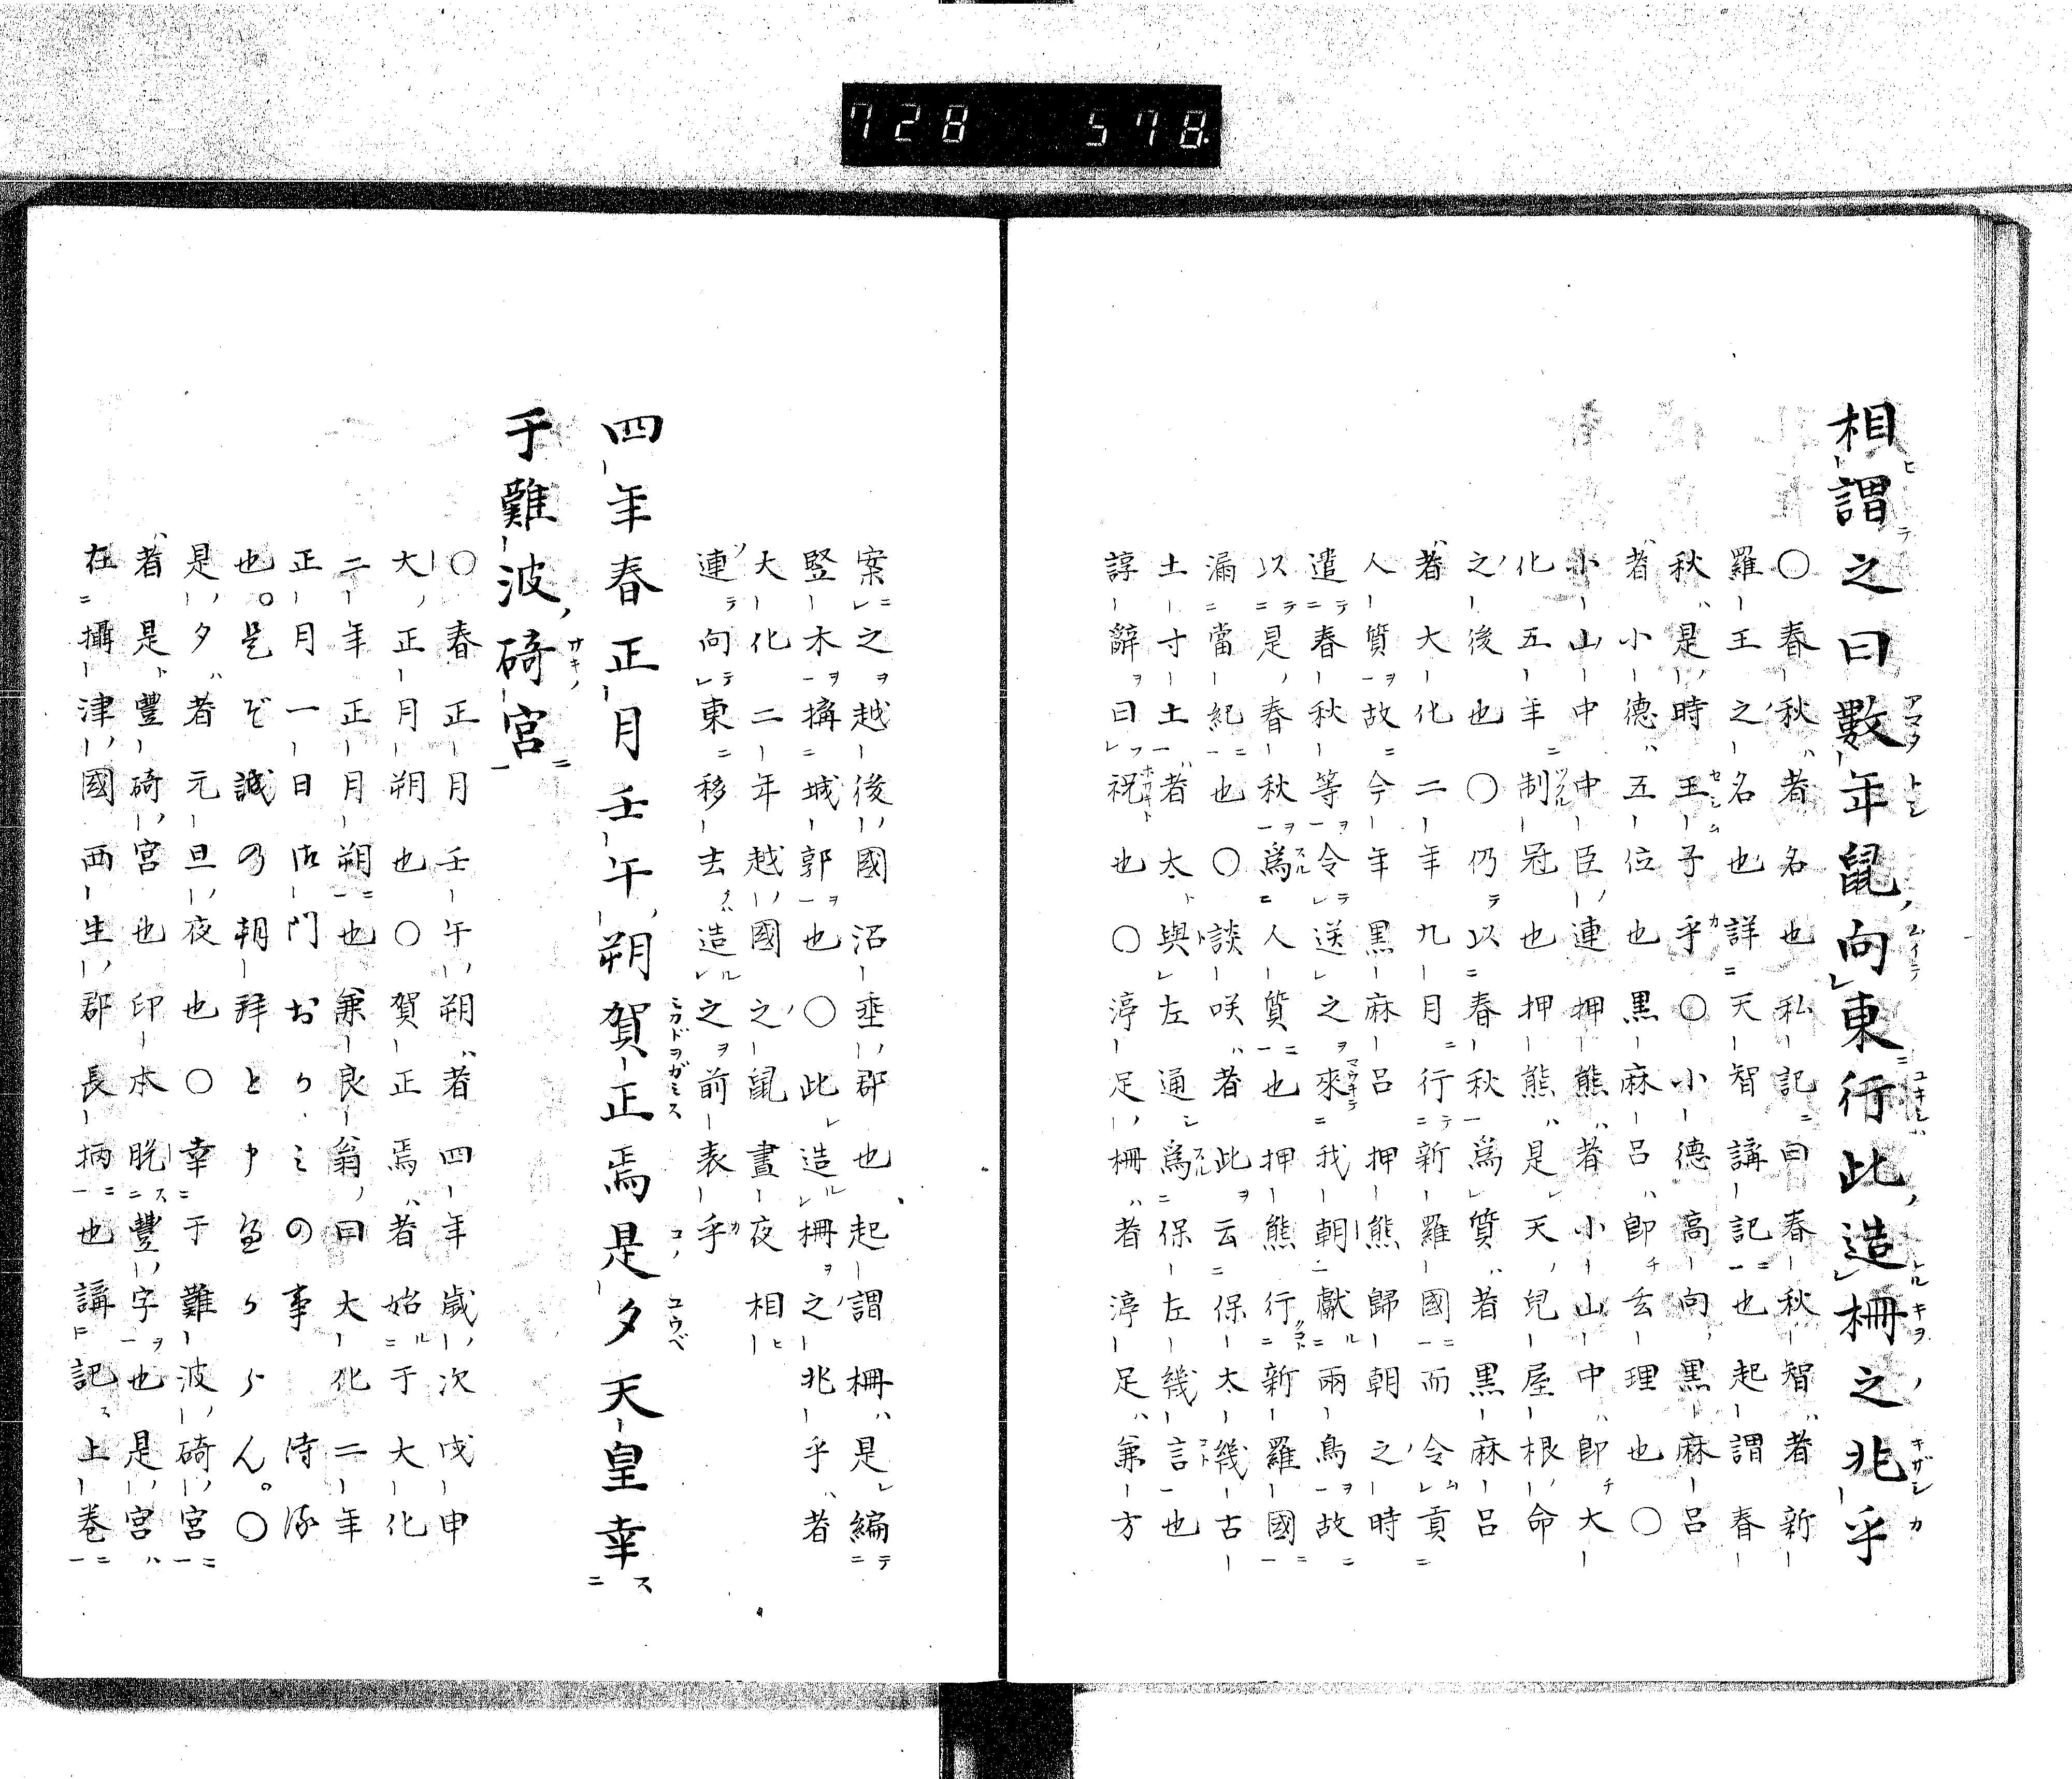 728 578
相謂之曰數年鼠向東行此造柵之兆乎
○春秋者名也私記曰春秋智者新
羅王之名也詳天智講記也起謂春
秋是時王子乎○小德高向黒麻呂
者小德五位也黒麻呂即玄理也○
小山中中臣連押熊者小山中即大
化五年制冠也押熊是天兒屋根命
之後也○仍以春秋爲質者黒麻呂
者大化二年九月行新羅國而令貢
人質故今年黒麻呂押熊歸朝之時
遣春秋等令送之來我朝獻兩鳥故
以是春秋爲人質也押熊行新羅國
漏當紀也○談咲者此云保太幾古
土寸土者太與左通爲保左幾言也
諄辭曰祝也○渟足柵者渟足兼方
案之越後國沼垂郡也起謂柵是編
竪木搆城郭也○此造柵之兆乎者
大化二年越國之鼠晝夜相
連向東移去造之前表乎
四年春正月壬午朔賀正焉是夕天皇幸
于難波碕宮
○春正月壬午朔者四年歲次戊申
大正月朔也○賀正焉者始于大化
二年正月朔也兼良翁曰大化二年
正月一日御門おりゐの事侍る
也是ぞ誠の朝拜と申はへらん。○
是夕者元旦夜也○幸于難波碕宮
者是豐碕宮也印本脱豐字也是宮
在攝津國西生郡長柄也講記上卷